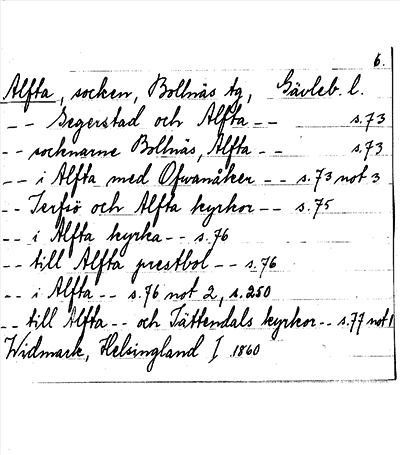 6.
Alfta, socken, Bollnäs tg, Gävleb. l.
-- Segerstad och Alfta -- s.73
-- socknarne Bollnäs, Alfta -- s.73
-- i Alfta med Ofwanåker -- s.73 not 3
-- Jerfsö och Alfta kyrkor -- s.75
-- i Alfta kyrka -- s.76
-- till Alfta prestbol -- s.76
-- i Alfta -- s.76 not 2, s.250
-- till Alfta -- och Tättendals kyrkor -- s.77 not 1
Widmark, Helsingland I 1860